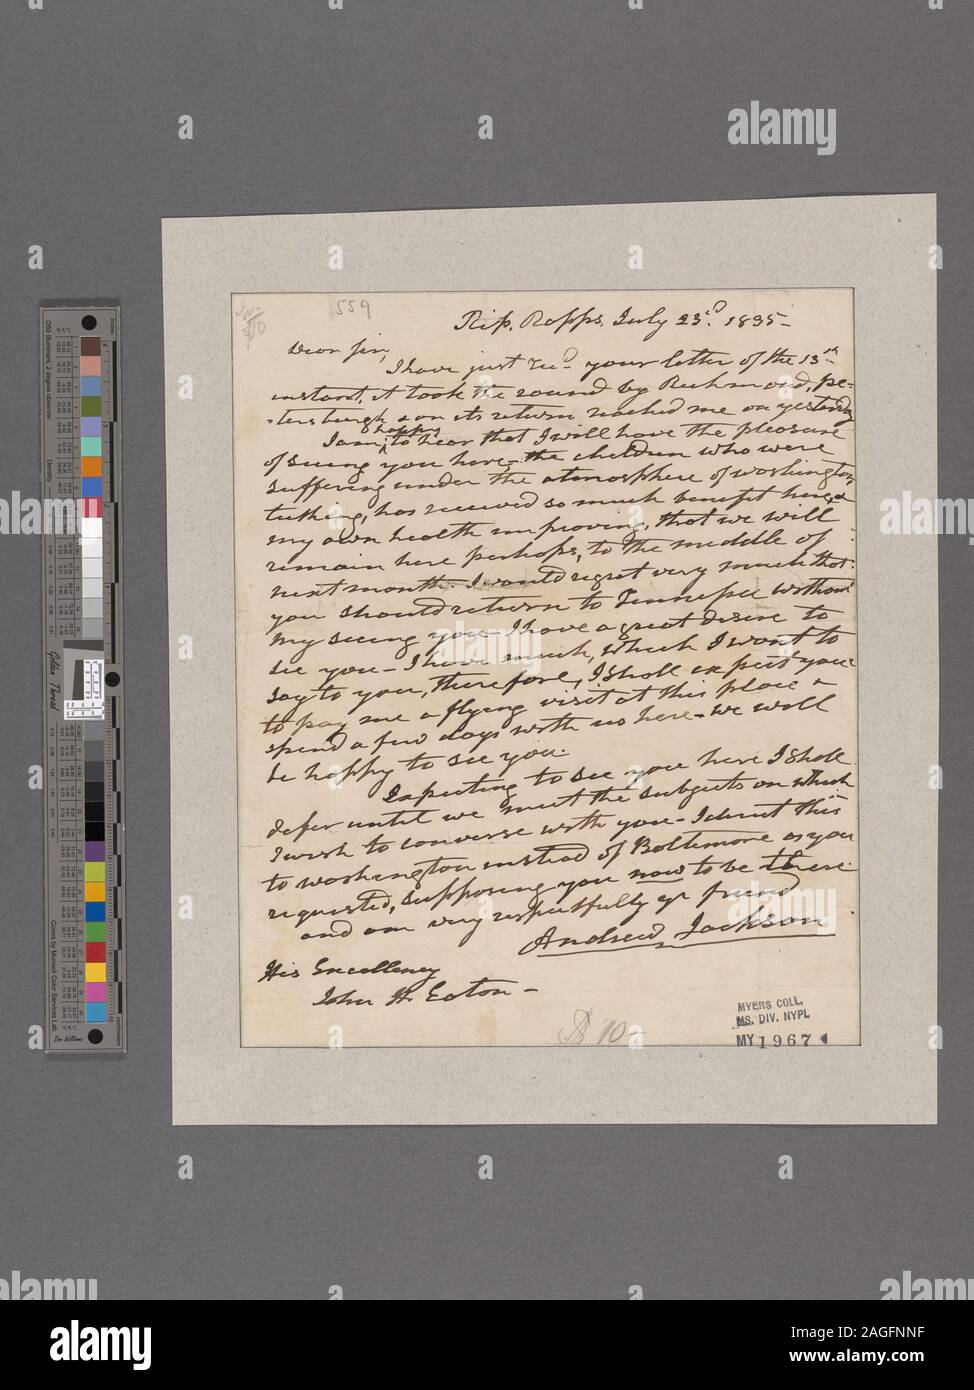 559
Rip. Rapps, July 23d. 1835-
Dear Sir,
I have just recd. your letter of the 13th
instant, it took the round by Richmond, Pe=
tersburgh & on its return reached me on yesterday
happy
I am to hear that I will have the pleasure
of seeing you here, the children who were
suffering under the atmosphere of washington,
teething, has received so much benefit here, &
my own health improving, that we will
remain here perhaps, to the middle of
next month. I would regret very much that
you should return to Tennessee without
my seeing you- I have a great desire to
see you- I have much, which I want to
say to you, therefore, I shall expect you
to pay me a flying visit at this place &
spend a few days with us here- we will
be happy to see you.
Expecting to see you here I shall
defer until we meet the subjects on which
I wish to converse with you- I direct this
to washington instead of Baltimore as you
requested, supposing you now to be there
and am very respectfully yr friend
Andrew Jackson
His Excellency
John H. Eaton-
10
MYERS COLL.
MS. DIV. NYPL
MY 1967
inches
D50 Illuminant, 2 degree observer
Density
Golden Thread
Colors by Munsell Color Services Lab
a
alamy
alamy
Image ID: 2AGFNNF
www.alamy.com